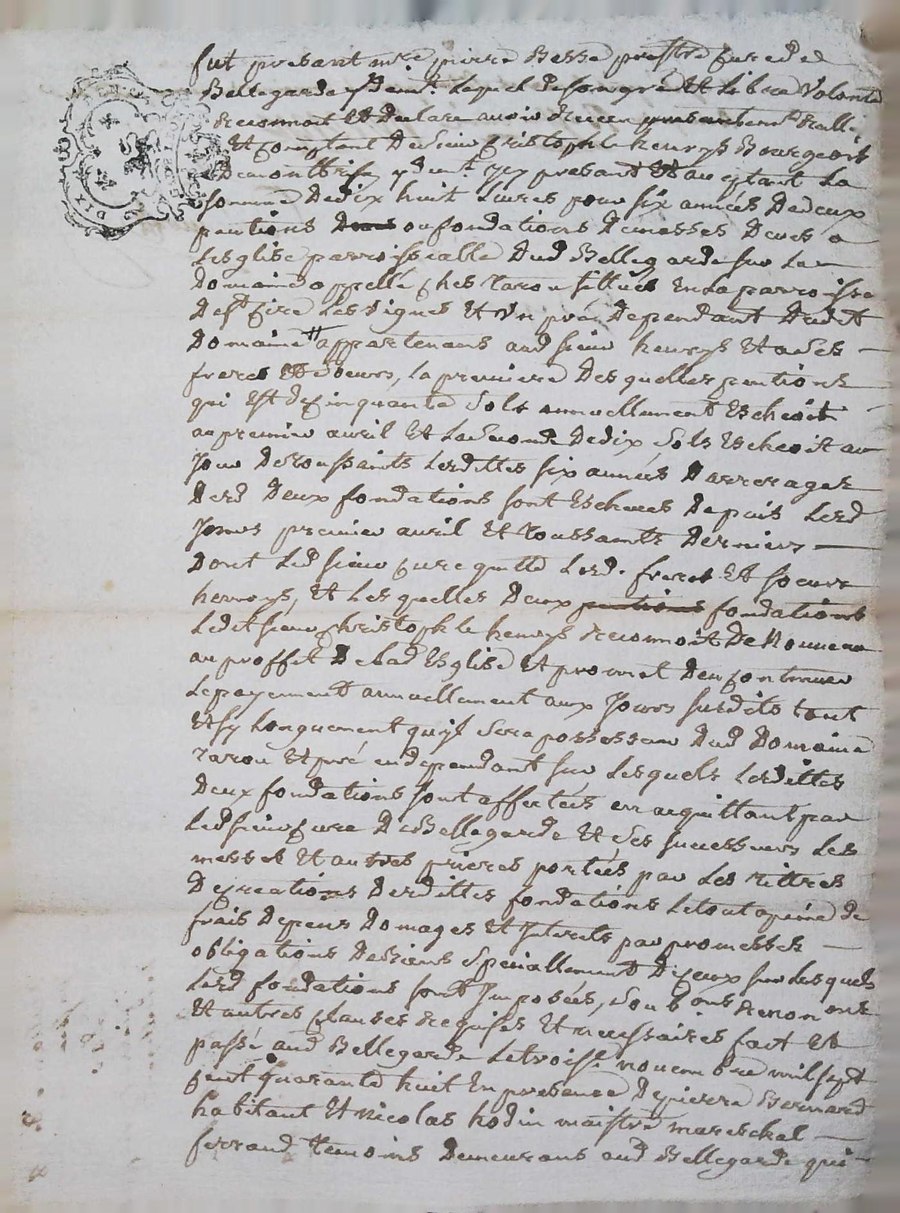 fut present mre pierre Besse prestre curé de
Bellegarde y dem.t Lequel de son gré et Libre Volonté
reconnoit et declare avoir receu presentem.t realle
et comptant de sieur Cristophle henrys Bourgeois
de montbrison y dem.t icy present et acceptant La
somme de dix huit Livres pour six années de deux
pentions ou fondations de messes dues a
L'esglise parroissialle dud Bellegarde sur Le
domaine appellé ches taron sittués En la parroisse
de st Cire Les vignes et un pré en Dependant dudit
Domaine appartenans aud sieur henrys et a ses
freres et soeurs, La premiere des quelles pentions
qui est de cinquante sols annuellement Escheoit
au premier avril et La seconde de dix sols Escheoit au
jour de toussaints Lesdittes six années d'arrerages
desd deux fondations sont Escheues depuis Lesd
jours premier avril et toussaints derniers
dont Led sieur curé quitte Lesd. freres et soeurs
henrys, et Les quelles deux pentions fondations
Ledit sieur Christophle henrys reconnoit de Nouveau
au proffit de Lad Esglise et promet d'en continuer
Le payement annuellement aux jours susdits tant
et sy Longuement qu'il sera possesseur dud Domaine
taron et pré en dependant sur Lesquels Lesdittes
deux fondations sont affectées en acquittant par
Led sieur curé de Bellegarde et ses successeurs Les
messes et autres prieres portées par Les tittres
de creations desdittes fondations Le tout a peine de
frais depens Domages et Interets par promesses
obligations de biens specialement d'iceux sur Lesquels
Lesd fondations sont Imposées, renon ons
et autres clauses requises et necessaires fait et
passé aud Bellegarde Le troise novembre mil sept
cent quarante huit En presence de pierre Bernard
habitant et nicolas hodin maistre mareschal
ferrand temoins demeurans aud Bellegarde qui
DIX